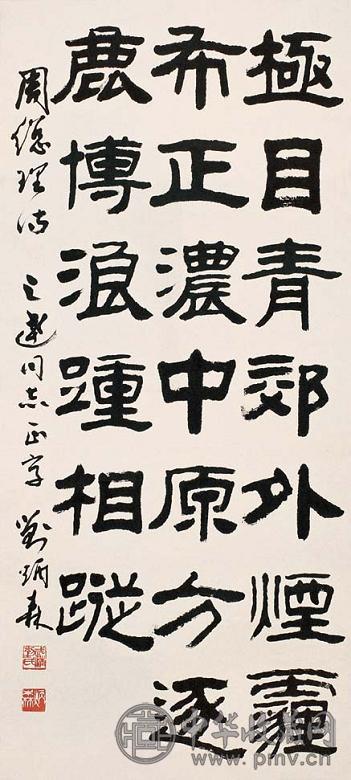 極目青郊外煙霾
布正濃中原方逐
鹿博浪踵相蹤
周總理诗 之同志正字 劉炳森
中华收藏网